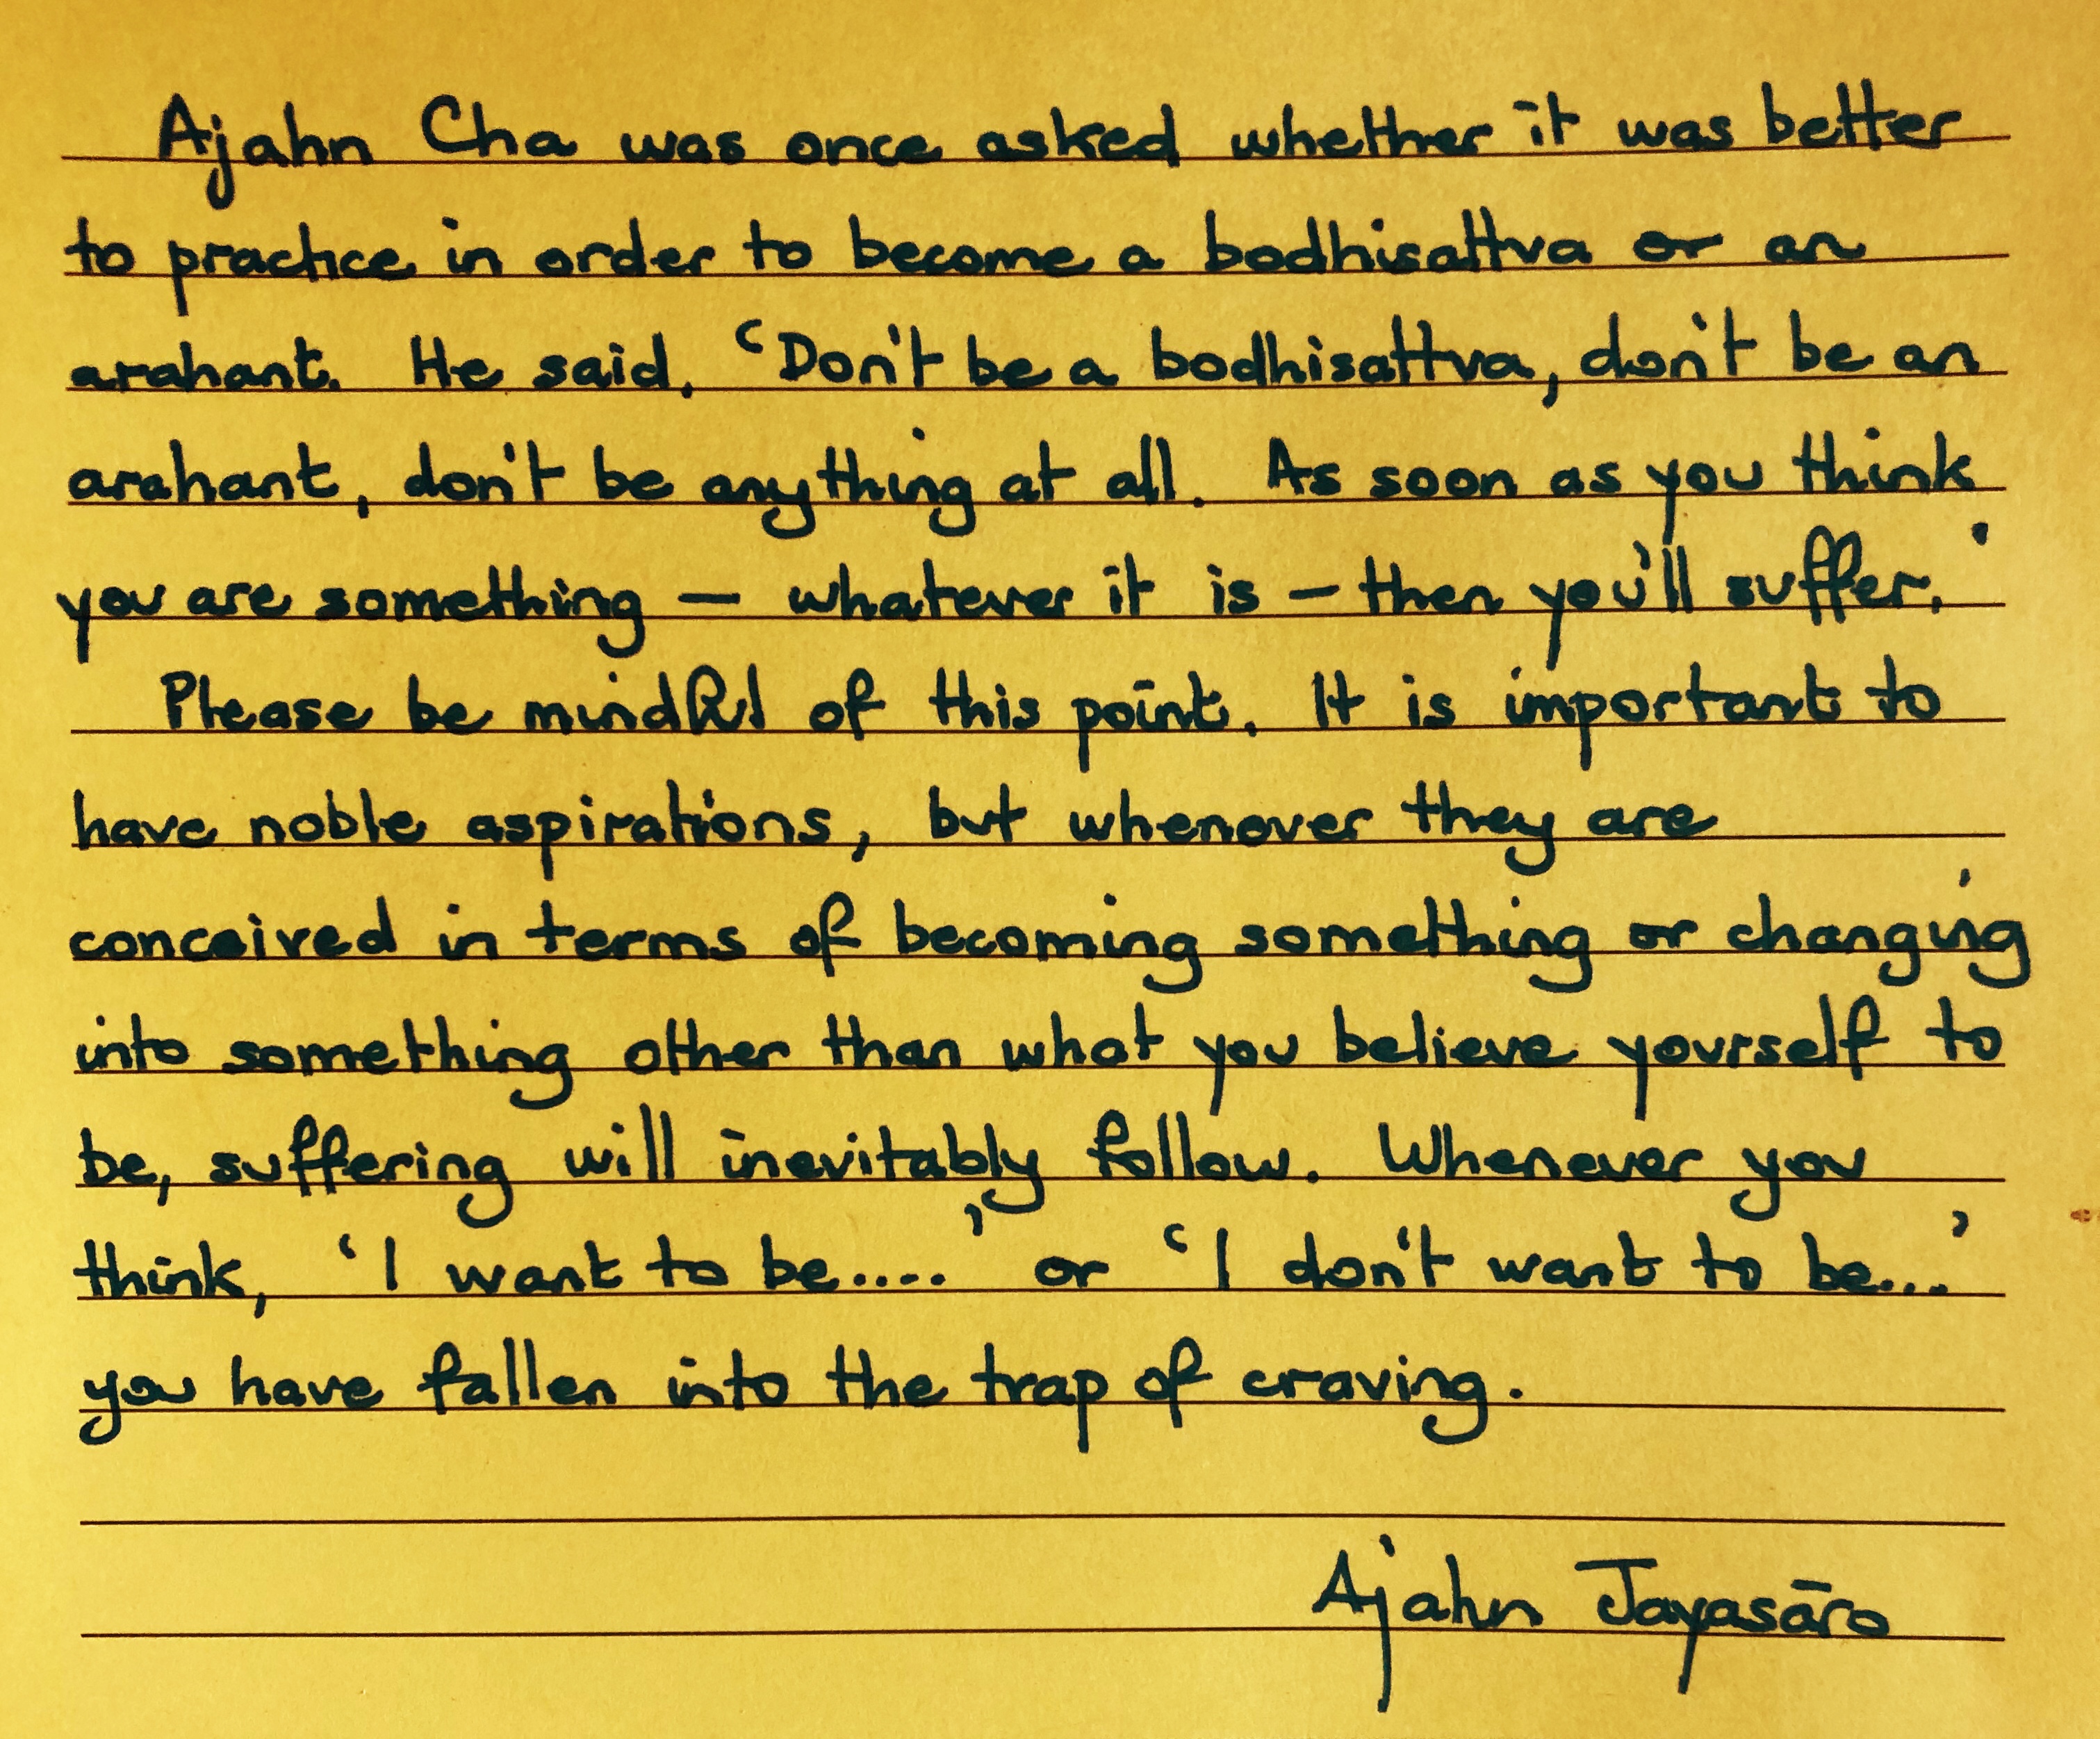 Ajahn Cha was once asked whether it was better
to practice in order to become a bodhisattva or an
arahant. He said, ‘Don't be a bodhisattva, don't be an
arahant, don't be anything at all. As soon as you think
you are something – whatever it is – then you'll suffer.’
Please be mindful of this point. It is important to
have noble aspirations, but whenever they are
conceived in terms of becoming something or changing
into something other than what you believe yourself to
be, suffering will inevitably follow. Whenever you
think, ‘I want to be....’ or ‘I don't want to be...’
you have fallen into the trap of craving.
Ajahn Jayasāro